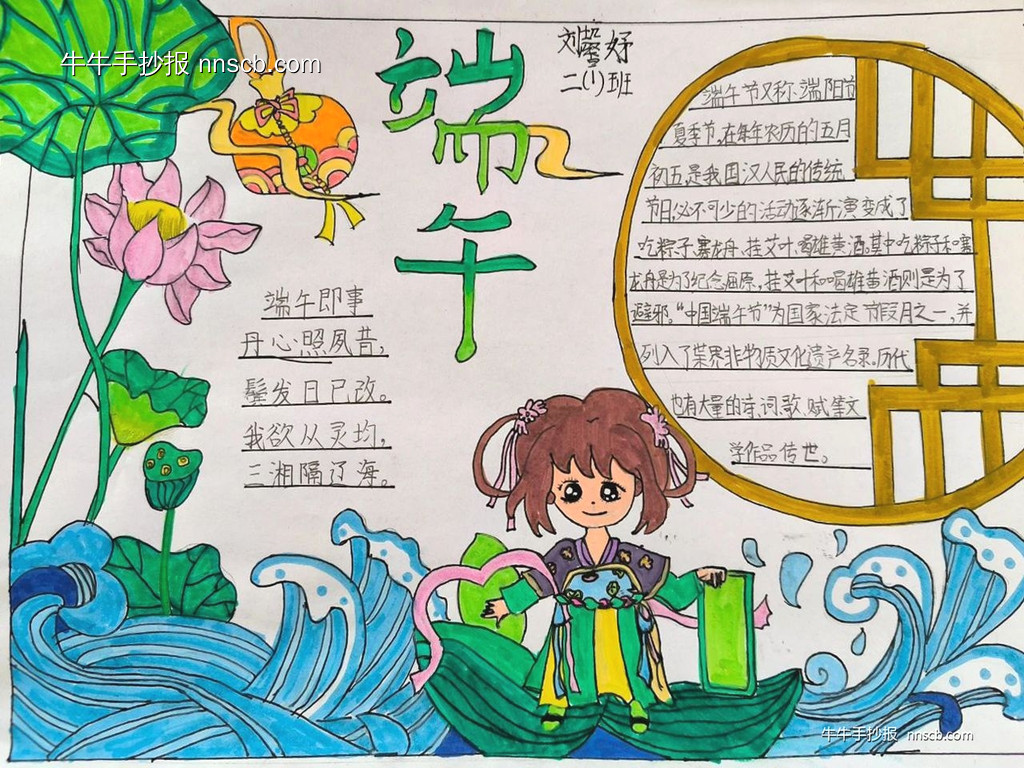 牛牛手抄报 nnscb.com
端午
刘馨妤
二(1)班
端午即事
丹心照夙昔,
鬓发日已改。
我欲从灵均,
三湘隔辽海。
端午节又称、端阳节
夏季节,在每年农历的五月
初五,是我国汉人民的传统
节日,必不可少的活动逐渐演变成了
吃粽子,赛龙舟、挂艾叶、喝雄黄酒,其中吃粽子和赛
龙舟是为了纪念屈原,挂艾叶和喝雄黄酒则是为了
避邪。“中国端午节”为国家法定节假月之一,并
列入了世界非物质文化遗产名录。历代
也有大量的诗、词、歌、赋等文
学作品传世。
牛牛手抄报 nnscb.com